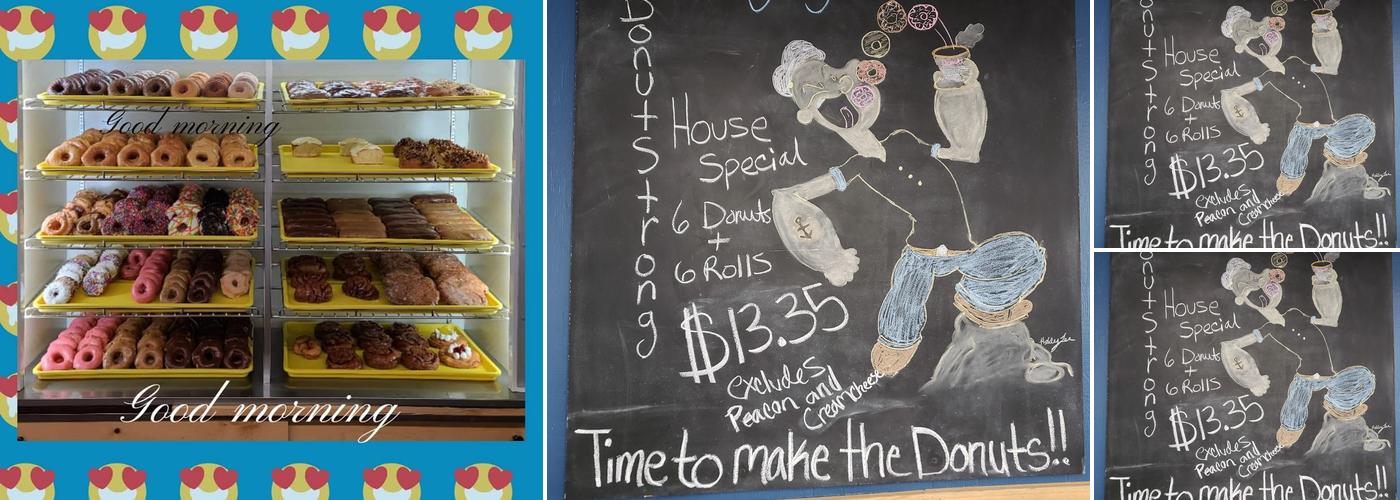 Good morning
Good morning
Donut Strong
House
Special
6 Donuts
+
6 Rolls
$13.35
excludes
Peacan and
Creamcheese
Time to make the Donuts!!
House
Special
6 Donuts
+
6 Rolls
$13.35
excludes
Peacan and
Creamcheese
Time to make the Donuts!!
onut Strong
House
Special
6 Donuts
+
6 Rolls
$13.35
excludes
Peacan and
Creamcheese
Time to make the Donuts!!